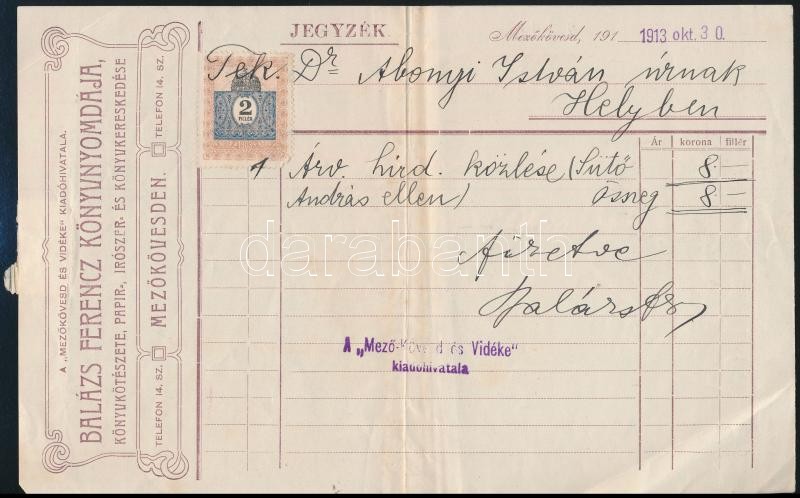 JEGYZÉK
Mezőkövesd, 191
1913 okt. 30.
Tek. Dr Abonyi István úrnak
Helyben
2
FILLÉR
Ár korona fillér
1 Árv. hird. közlése (Sütő 8 —
András ellen) összeg 8 —
Balázs F
A „Mező-Kövesd és Vidéke"
kiadóhivatala
A „MEZŐKÖVESD ÉS VIDÉKE" KIADÓHIVATALA.
BALÁZS FERENCZ KÖNYVNYOMDÁJA,
KÖNYVKÖTÉSZETE, PAPIR-, IRÓSZER- ÉS KÖNYVKERESKEDÉSE
MEZŐKÖVESDEN.
TELEFON 14. SZ. TELEFON 14. SZ.
darabanth